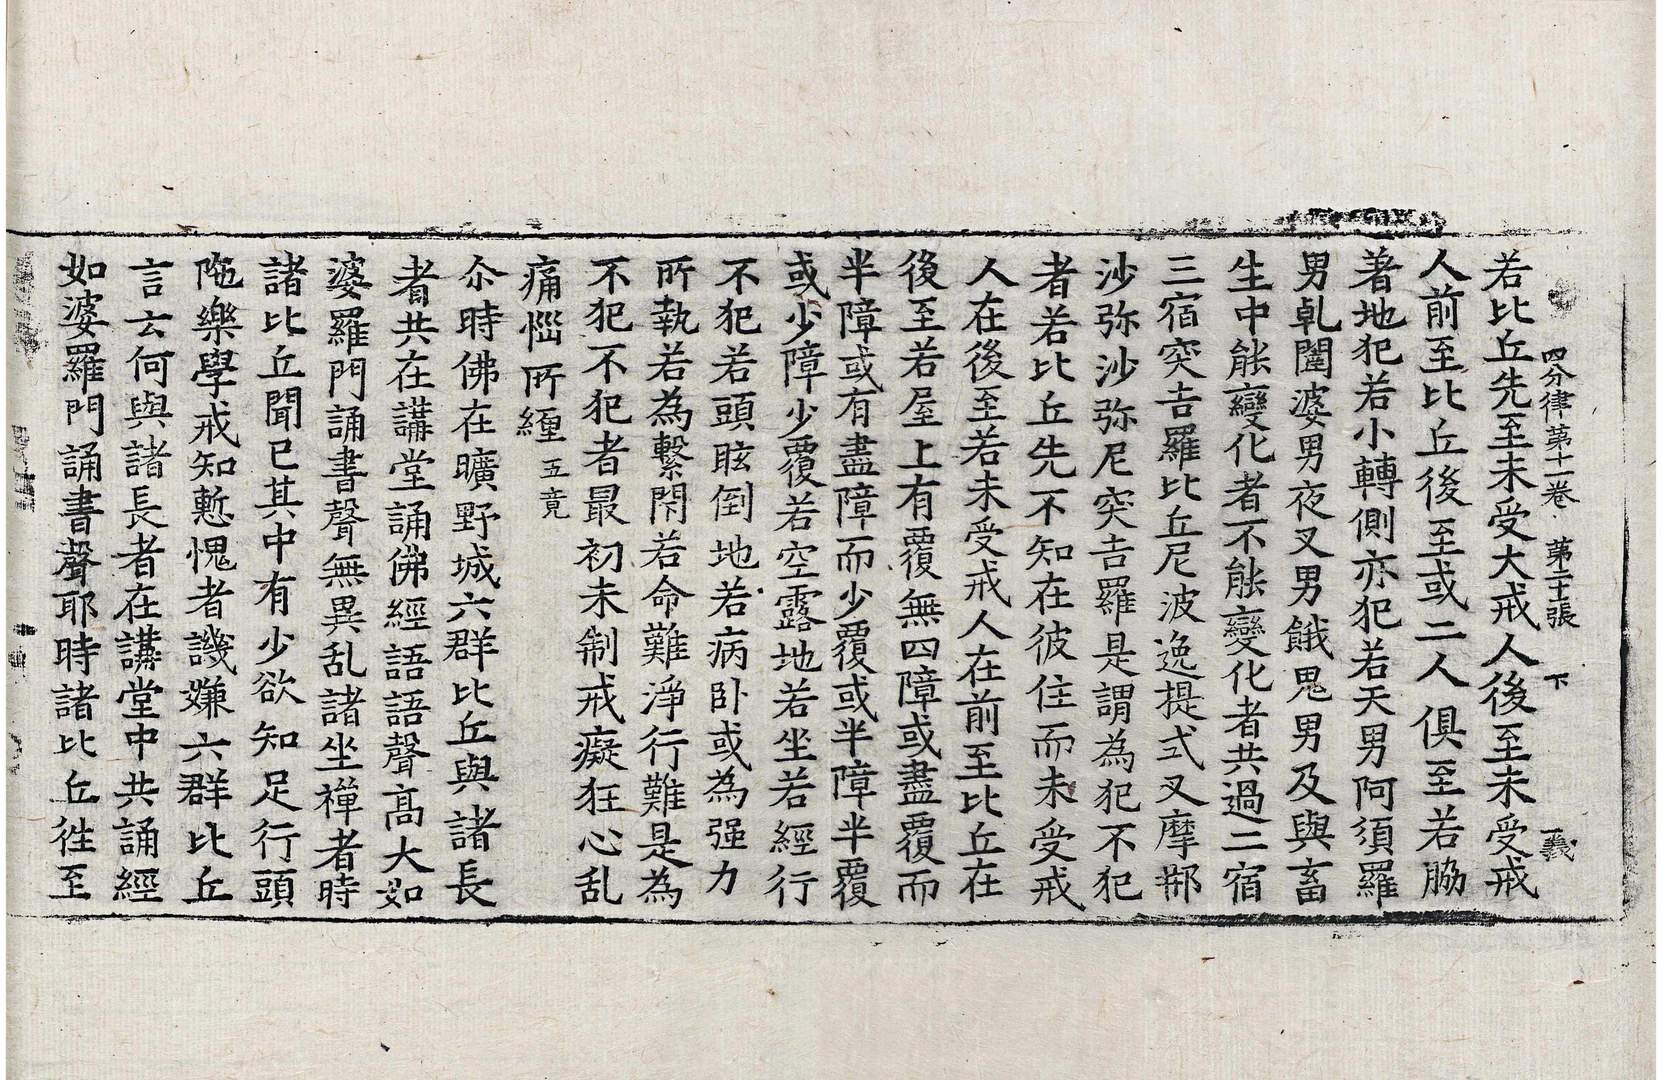 四分律第十一卷 第二十張 下 義
若比丘先至未受大戒人後至未受戒
人前至比丘後至或二人俱至若脇
著地犯若小轉側亦犯若天男阿須羅
男乹闥婆男夜叉男餓鬼男及與畜
生中能變化者不能變化者共過二宿
三宿突吉羅比丘尼波逸提式叉摩那
沙弥沙弥尼突吉羅是謂為犯不犯
者若比丘先不知在彼住而未受戒
人在後至若未受戒人在前至比丘在
後至若屋上有覆無四障或盡覆而
半障或有盡障而少覆或半障半覆
或少障少覆若空露地若坐若經行
不犯若頭眩倒地若病卧或為强力
所執若為繫閇若命難淨行難是為
不犯不犯者最初未制戒癡狂心乱
痛惱所纏 五竟
尒時佛在曠野城六群比丘與諸長
者共在講堂誦佛經語語聲高大如
婆羅門誦書聲無異乱諸坐禪者時
諸比丘聞已其中有少欲知足行頭
陁樂學戒知慙愧者譏嫌六群比丘
言云何與諸長者在講堂中共誦經
如婆羅門誦書聲耶時諸比丘徃至